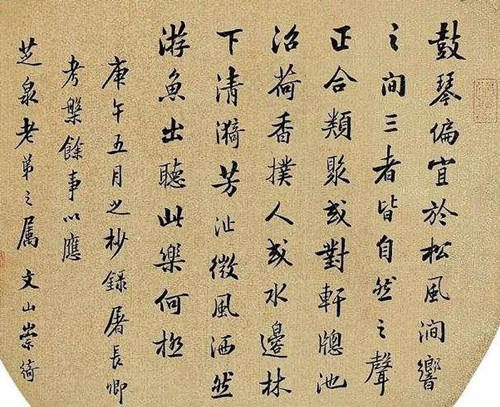 鼓琴偏宜於松風澗響
之間三者皆自然之聲
正合類聚或對軒牎池
沼荷香撲人或水邊林
下清漪芳沚微風洒然
游魚出聽此樂何極
庚午五月之杪錄屠長卿
考槃餘事以應
芝泉老弟之屬 文山崇綺